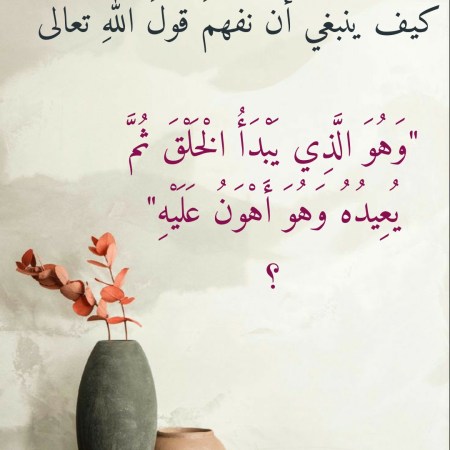 كيف ينبغي أن نفهمَ قولَ اللهِ تعالى
"وَهُوَ الَّذِي يَبْدَأُ الْخَلْقَ ثُمَّ
يُعِيدُهُ وَهُوَ أَهْوَنُ عَلَيْهِ"
؟